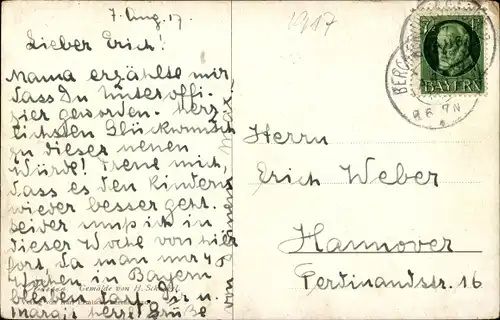 7. Aug. 17.
1917
Lieber Erich!
Mama erzählte mir,
dass Du Unteroffi-
zier geworden. Herz
lichsten Glückwunsch
zu dieser neuen
Würde! Freue mich,
dass es den Kindern
wieder besser geht.
Leider muß ich in
dieser Woche von hier
fort, da man nur 4
Wochen in Bayern
bleiben darf. Dir u.
herzl. Grüße
Gemälde von H.
BAYERN
7 N
Herrn
Erich Weber
Hannover
Ferdinandstr. 16